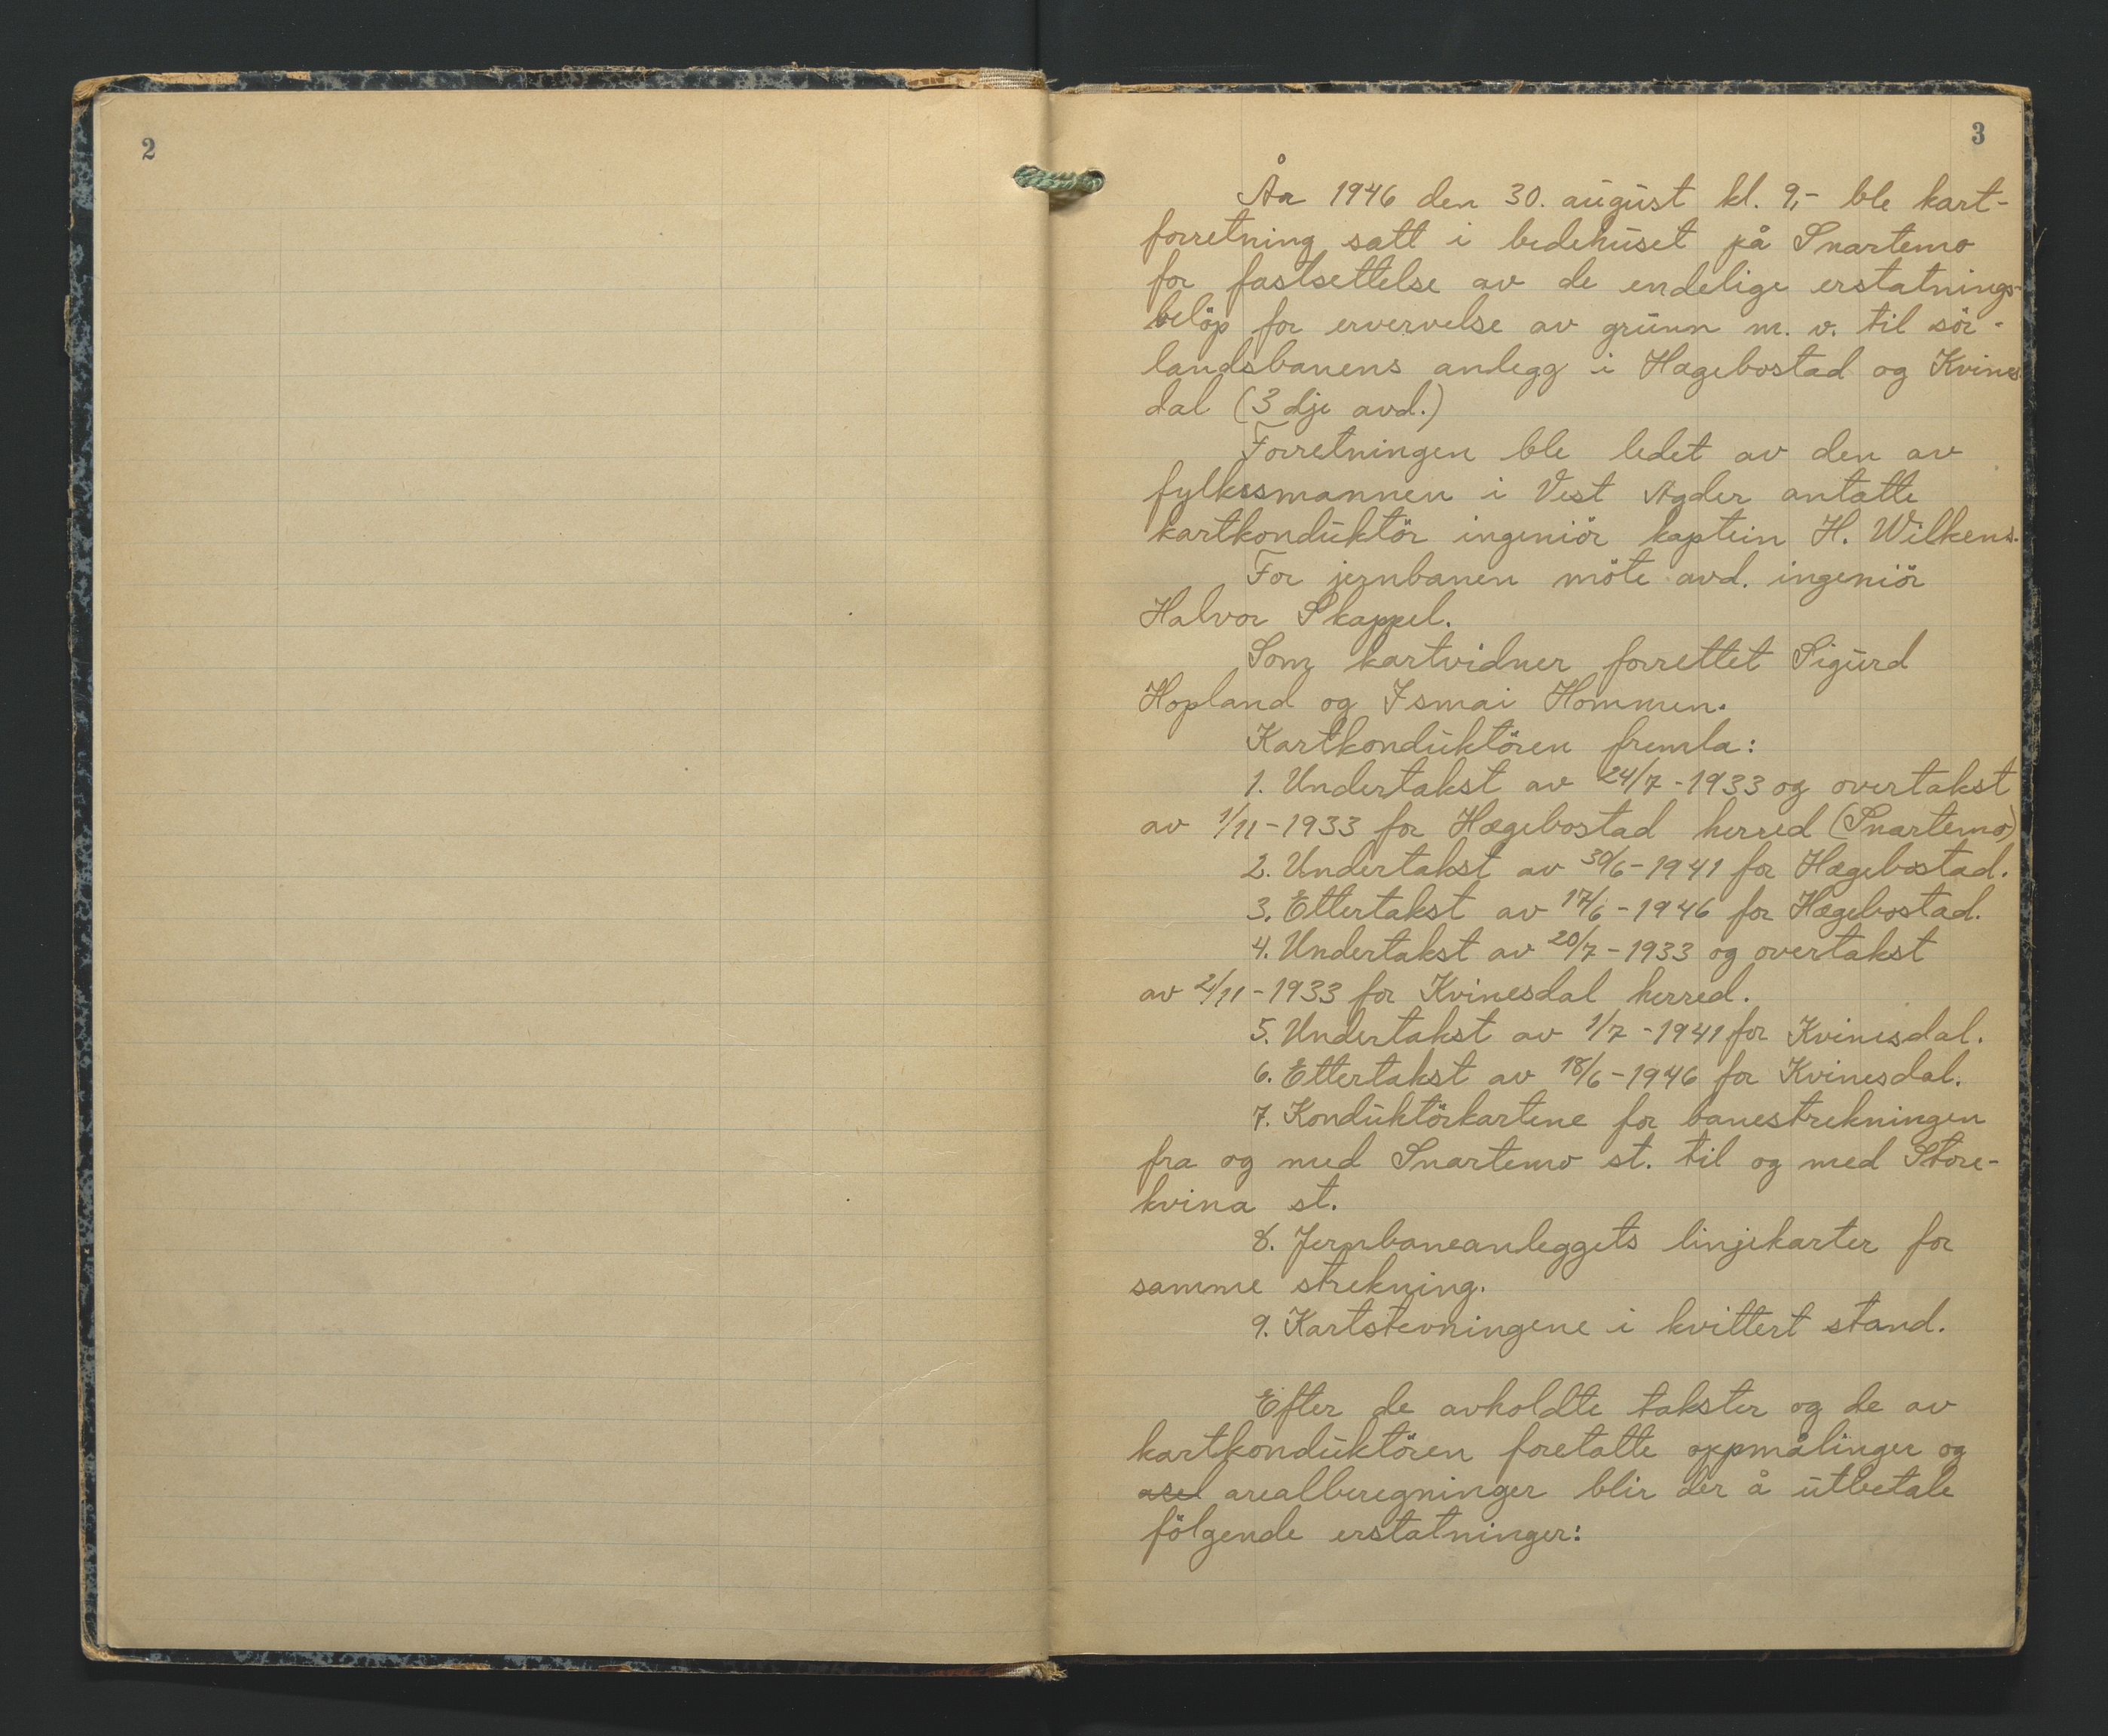 2
3
År 1946 den 30. august kl. 9,- ble kart-
forretning satt i bedehuset på Snartemo
for fastsettelse av de endelige erstatnings-
beløp for ervervelse av grunn m. v. til sör-
landsbanens anlegg i Hægebostad og Kvines-
dal (3 dje avd.)
Forretningen ble ledet av den av
fylkesmannen i Vest Agder antatte
kartkonduktör ingeniör kaptein H. Wilkens.
For jernbanen möte avd. ingeniör
Halvor Skappel.
Som kartvidner forrettet Sigurd
Hopland og Ismai Hommen.
Kartkonduktören fremla:
1. Undertakst av 24/7-1933 og overtakst
av 1/11-1933 for Hægebostad herred (Snartemo)
2. Undertakst av 30/6-1941 for Hægebostad.
3. Ettertakst av 17/6-1946 for Hægebostad.
4. Undertakst av 20/7-1933 og overtakst
av 2/11-1933 for Kvinesdal herred.
5. Undertakst av 1/7-1941 for Kvinesdal.
6. Ettertakst av 18/6-1946 for Kvinesdal.
7. Konduktörkartene for banestrekningen
fra og med Snartemo st. til og med Store-
kvina st.
8. Jernbaneanleggets linjekarter for
samme strekning.
9. Kartstevningene i kvittert stand.
Efter de avholdte takster og de av
kartkonduktören foretatte oppmålinger og
arealberegninger blir der å utbetale
fölgende erstatninger: